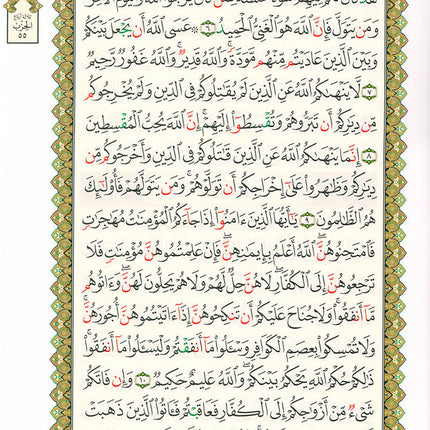 الحزب
٥٥
وَمَن يَتَوَلَّ فَإِنَّ ٱللَّهَ هُوَ ٱلْغَنِيُّ ٱلْحَمِيدُ ٦ ۞ عَسَى ٱللَّهُ أَن يَجْعَلَ بَيْنَكُمْ
وَبَيْنَ ٱلَّذِينَ عَادَيْتُم مِّنْهُم مَّوَدَّةً ۚ وَٱللَّهُ قَدِيرٌ ۚ وَٱللَّهُ غَفُورٌ رَّحِيمٌ
٧ لَّا يَنْهَىٰكُمُ ٱللَّهُ عَنِ ٱلَّذِينَ لَمْ يُقَٰتِلُوكُمْ فِى ٱلدِّينِ وَلَمْ يُخْرِجُوكُم
مِّن دِيَٰرِكُمْ أَن تَبَرُّوهُمْ وَتُقْسِطُوٓا۟ إِلَيْهِمْ ۚ إِنَّ ٱللَّهَ يُحِبُّ ٱلْمُقْسِطِينَ
٨ إِنَّمَا يَنْهَىٰكُمُ ٱللَّهُ عَنِ ٱلَّذِينَ قَٰتَلُوكُمْ فِى ٱلدِّينِ وَأَخْرَجُوكُم مِّن
دِيَٰرِكُمْ وَظَٰهَرُوا۟ عَلَىٰٓ إِخْرَاجِكُمْ أَن تَوَلَّوْهُمْ ۚ وَمَن يَتَوَلَّهُمْ فَأُو۟لَٰٓئِكَ
هُمُ ٱلظَّٰلِمُونَ ٩ يَٰٓأَيُّهَا ٱلَّذِينَ ءَامَنُوٓا۟ إِذَا جَآءَكُمُ ٱلْمُؤْمِنَٰتُ مُهَٰجِرَٰتٍ
فَٱمْتَحِنُوهُنَّ ۖ ٱللَّهُ أَعْلَمُ بِإِيمَٰنِهِنَّ ۖ فَإِنْ عَلِمْتُمُوهُنَّ مُؤْمِنَٰتٍ فَلَا
تَرْجِعُوهُنَّ إِلَى ٱلْكُفَّارِ ۖ لَا هُنَّ حِلٌّ لَّهُمْ وَلَا هُمْ يَحِلُّونَ لَهُنَّ ۖ وَءَاتُوهُم
مَّآ أَنفَقُوا۟ ۚ وَلَا جُنَاحَ عَلَيْكُمْ أَن تَنكِحُوهُنَّ إِذَآ ءَاتَيْتُمُوهُنَّ أُجُورَهُنَّ ۚ
وَلَا تُمْسِكُوا۟ بِعِصَمِ ٱلْكَوَافِرِ وَسْـَٔلُوا۟ مَآ أَنفَقْتُمْ وَلْيَسْـَٔلُوا۟ مَآ أَنفَقُوا۟ ۚ
ذَٰلِكُمْ حُكْمُ ٱللَّهِ ۖ يَحْكُمُ بَيْنَكُمْ ۚ وَٱللَّهُ عَلِيمٌ حَكِيمٌ ١٠ وَإِن فَاتَكُمْ
شَىْءٌ مِّنْ أَزْوَٰجِكُمْ إِلَى ٱلْكُفَّارِ فَعَاقَبْتُمْ فَـَٔاتُوا۟ ٱلَّذِينَ ذَهَبَتْ